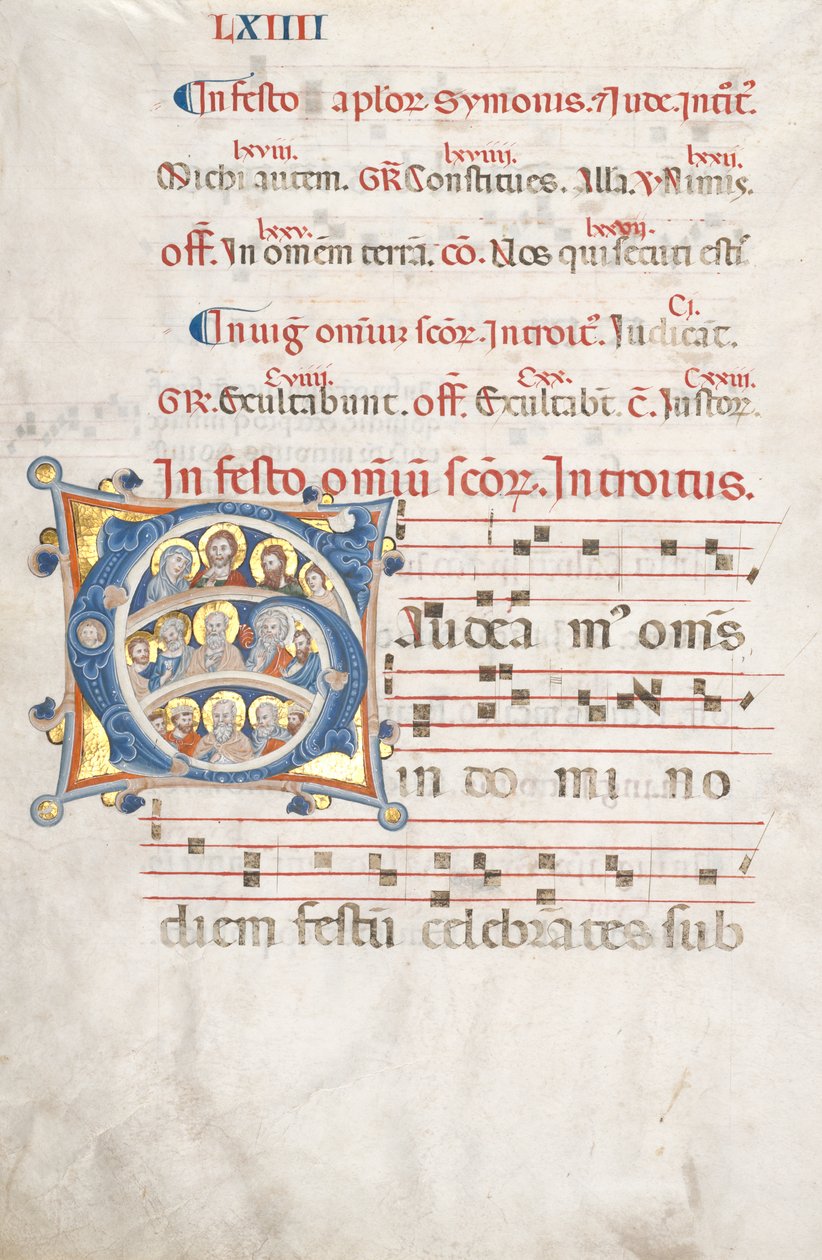 LXIIII
In festo aplōr Symonis. ⁊ Iude. Intoit̄.
lxviii. lxviiii. lxxii.
Michi autem. GR̄ Constitues. Alla. V Nimis.
lxxv. lxxvii.
off̄. In omēm terrā. cō. Nos qui secuti esti
Cj.
In uig̅ omīuꝫ scōꝝ. Introit⁹. Iudicāt.
Cviiii. Cxx. Cxxiii.
GR. Exultabunt. off̄. Exultabt̄. c̄. Iustoꝝ.
In festo om̄iū scōꝝ. Introitus.
GAudea m⁹ om̄s
in do mi no
diem festū celebrātes sub